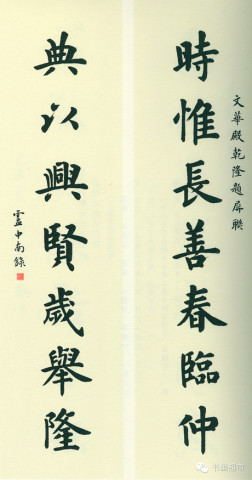 文華殿乾隆題屏聯
時惟長善春臨仲
典以興賢歲舉隆
盧中南錄
书画超市